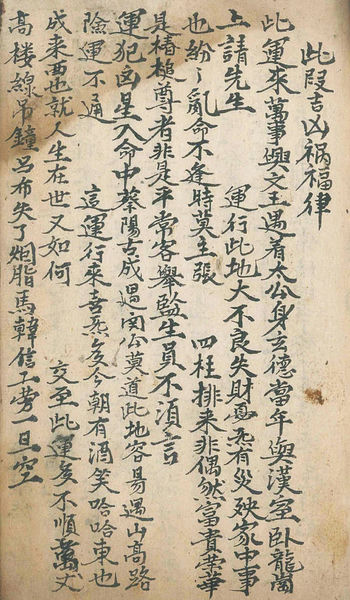 此段吉凶禍福律
此運來萬事興文王遇着太公身玄德當年興漢室卧龍崗
上請先生　運行此地大不良失財惹氣有災殃家中事
也紛々亂命不逢時莫主張　四柱排來非偶然富貴榮華
是椿槐尊者非是平常客舉監生員不須言
運犯凶星入命中蔡陽古成遇関公莫道此地容易過山高路
險運不通　這運行來喜氣多今朝有酒笑哈哈東也
成來西也就人生在世又如何　交至此運矣不順萬丈
高楼線吊鐘呂布失了胭脂馬韓信功勞一旦空